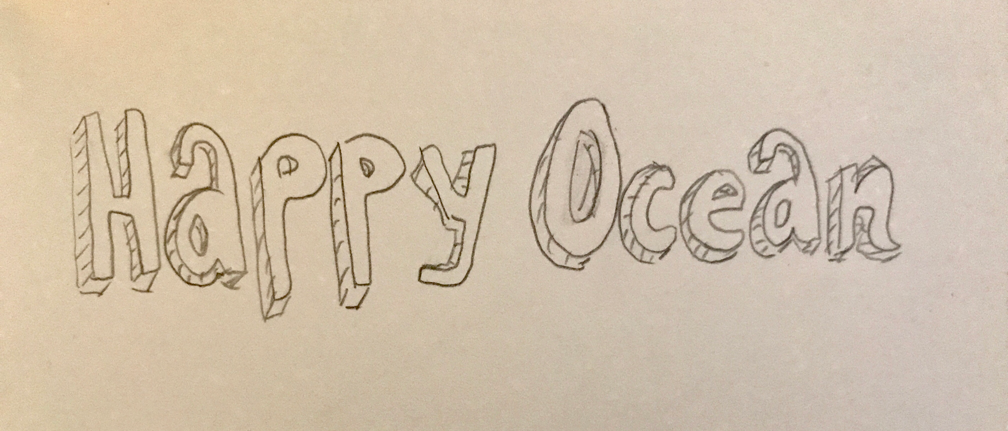 Happy Ocean